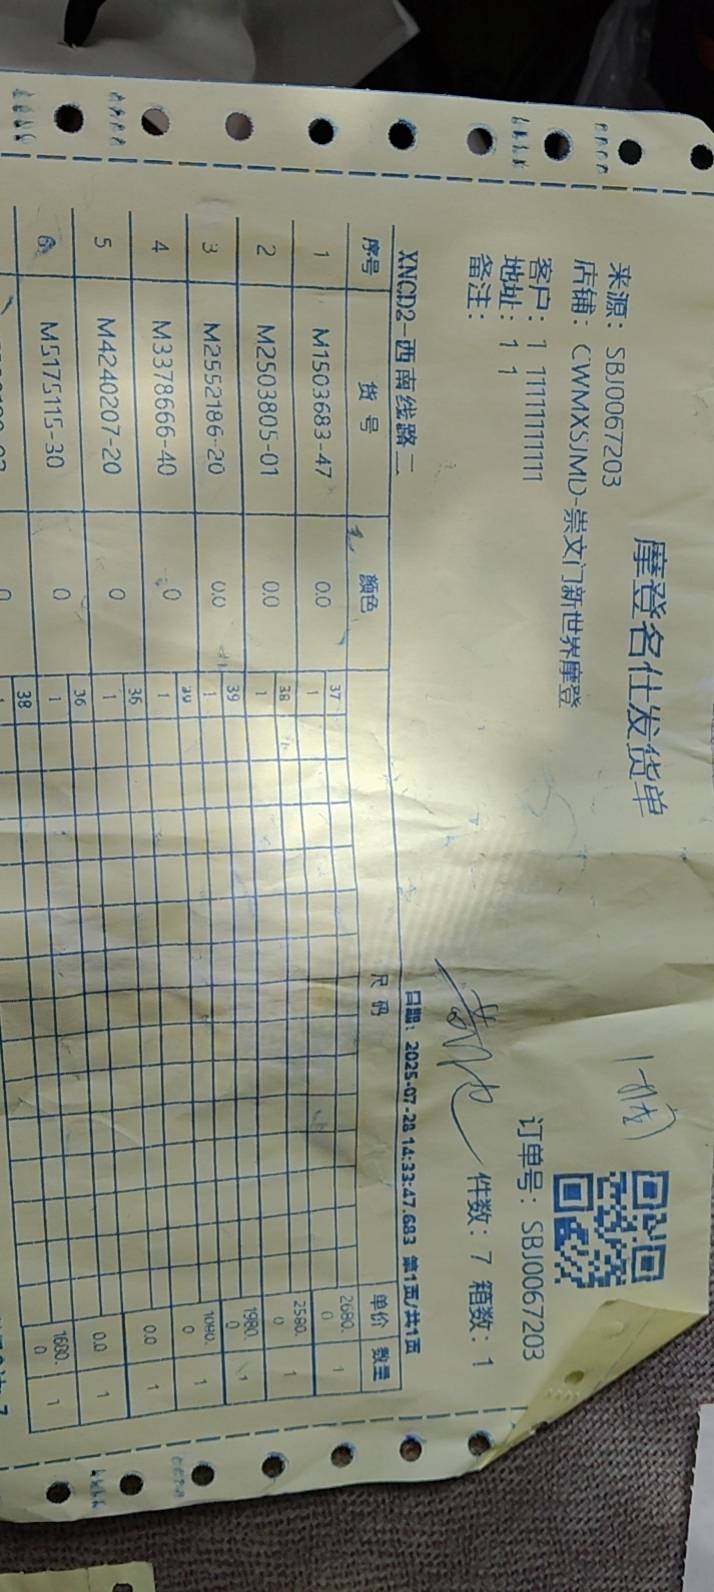 摩登名仕发货单
来源： SBJ0067203
店铺： CWMXSJMD-崇文门新世界摩登
订单号： SBJ0067203
客户： 1 11111111111
地址： 1 1
件数： 7 箱数： 1
备注：
XNCD2-西南线路二 日期： 2025-07-28 14:33:47.683 第1页/共1页
序号 货号 颜色 尺码 单价 数量
37
1 M1503683-47 0.0 1 2680.0 1
38
2 M2503805-01 0.0 1 2580.0 1
39
3 M2552186-20 0.0 1 1980.0 1
4 M3378666-40 0 1 1080.0 1
36
5 M4240207-20 0 1 0.0 1
36
6 M5175115-30 0 1 0.0 1
38
1680.0 1